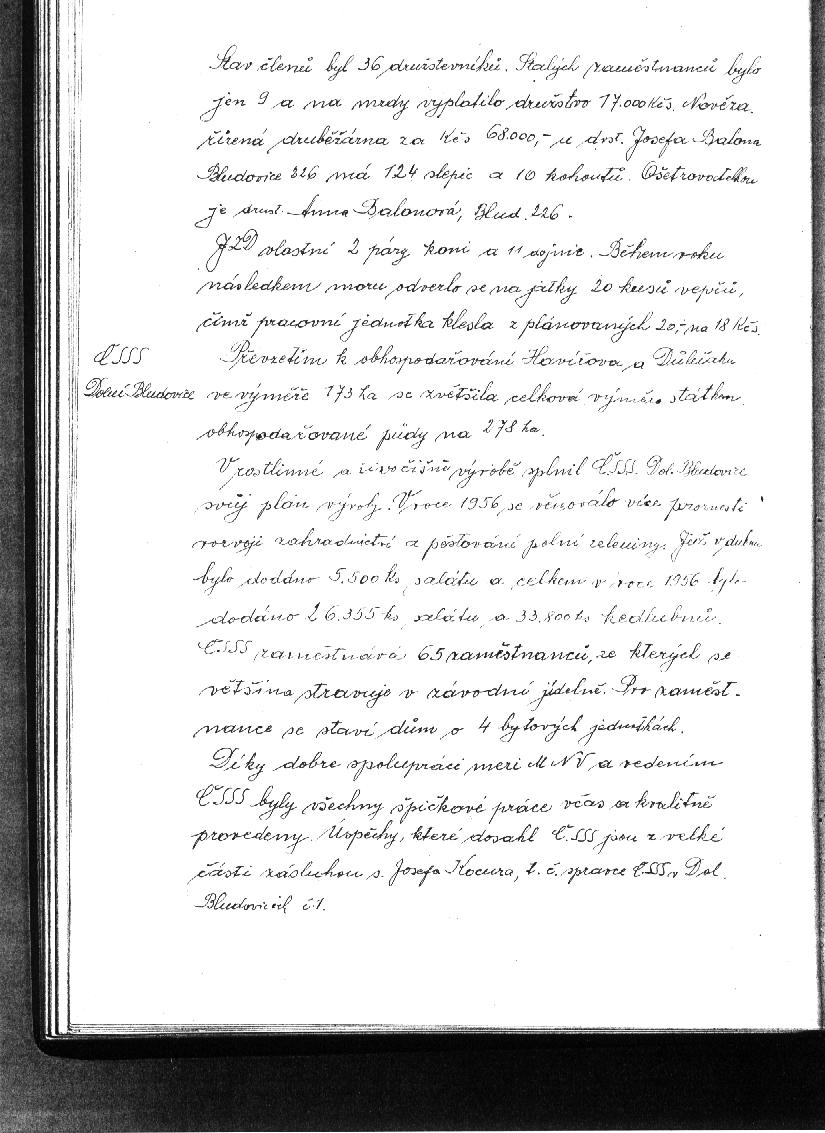 Stav členů byl 36 družstevníků. Stálých zaměstnanců bylo
jen 9 a na mzdy vyplatilo družstvo 17.000 Kčs. Nově za-
řízená druběžárna za Kčs 68.000,- u drst. Josefa Balona
Bludovice 226 má 124 slepic a 10 kohoutů. Ošetrovatelkou
je drust. Anna Balonová, Blud. 226.
JZD vlastní 2 páry koni a 11 dojnic. Během roku
následkem moru odvezlo se na jatky 20 kusů vepřů,
čímž pracovní jednotka klesla z plánovaných 20,- na 18 Kčs.
ČSSS
Dolní Bludovice
Převzetím k obhospodařování Havířova a Důlňáku
ve výměře 173 ha se zvětšila celková výměra státkem
obhospodařované půdy na 278 ha.
V rostlinné a živočišné výrobě splnil ČSSS Dol. Bludovice
svůj plán výroby. V roce 1956 se věnovalo více pozornosti
rozvoji zahradnictví a pěstování polní zeleniny. Již v dubnu
bylo dodáno 5.500 ks salátu a celkem v roce 1956 bylo
dodáno 26.355 ks salátu a 33.800 ks kedlubnů.
ČSSS zaměstnává 65 zaměstnanců, ze kterých se
většina stravuje v závodní jídelně. Pro zaměst-
nance se staví dům o 4 bytových jednotkách.
Díky dobre spolupráci mezi MNV a vedením
ČSSS byly všechny špičkové práce včas a kvalitně
provedeny. Úspěchy, které dosahl ČSSS jsou z velké
části zásluhou s. Josefa Kocura, t. č. správce ČSSS v Dol.
Bludovicích č.1.